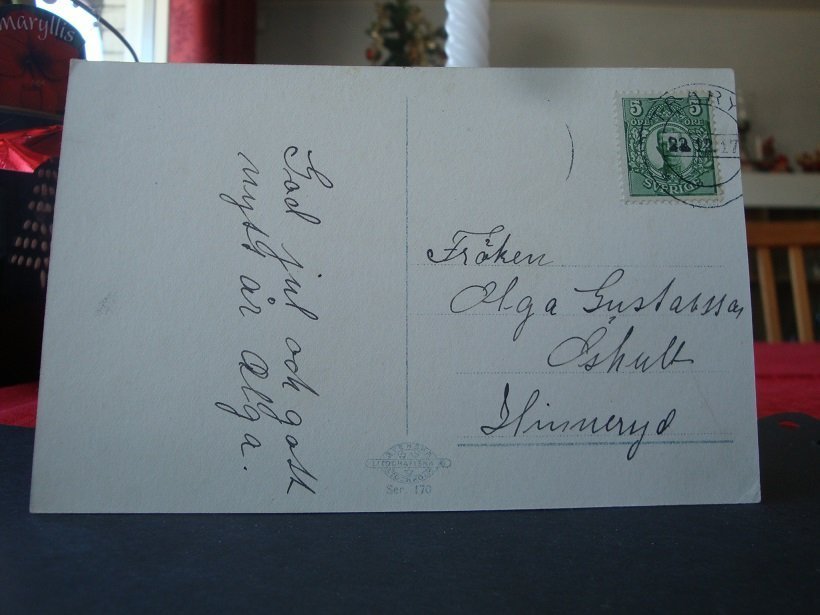 maryllis
5 5
ÖRE ÖRE
SVERIGE
22.12.17
God jul och gott
nytt år Olga.
Fröken
Olga Gustabsson
Eshult
Hinneryd
LITOGRAFISKA
Ser. 170